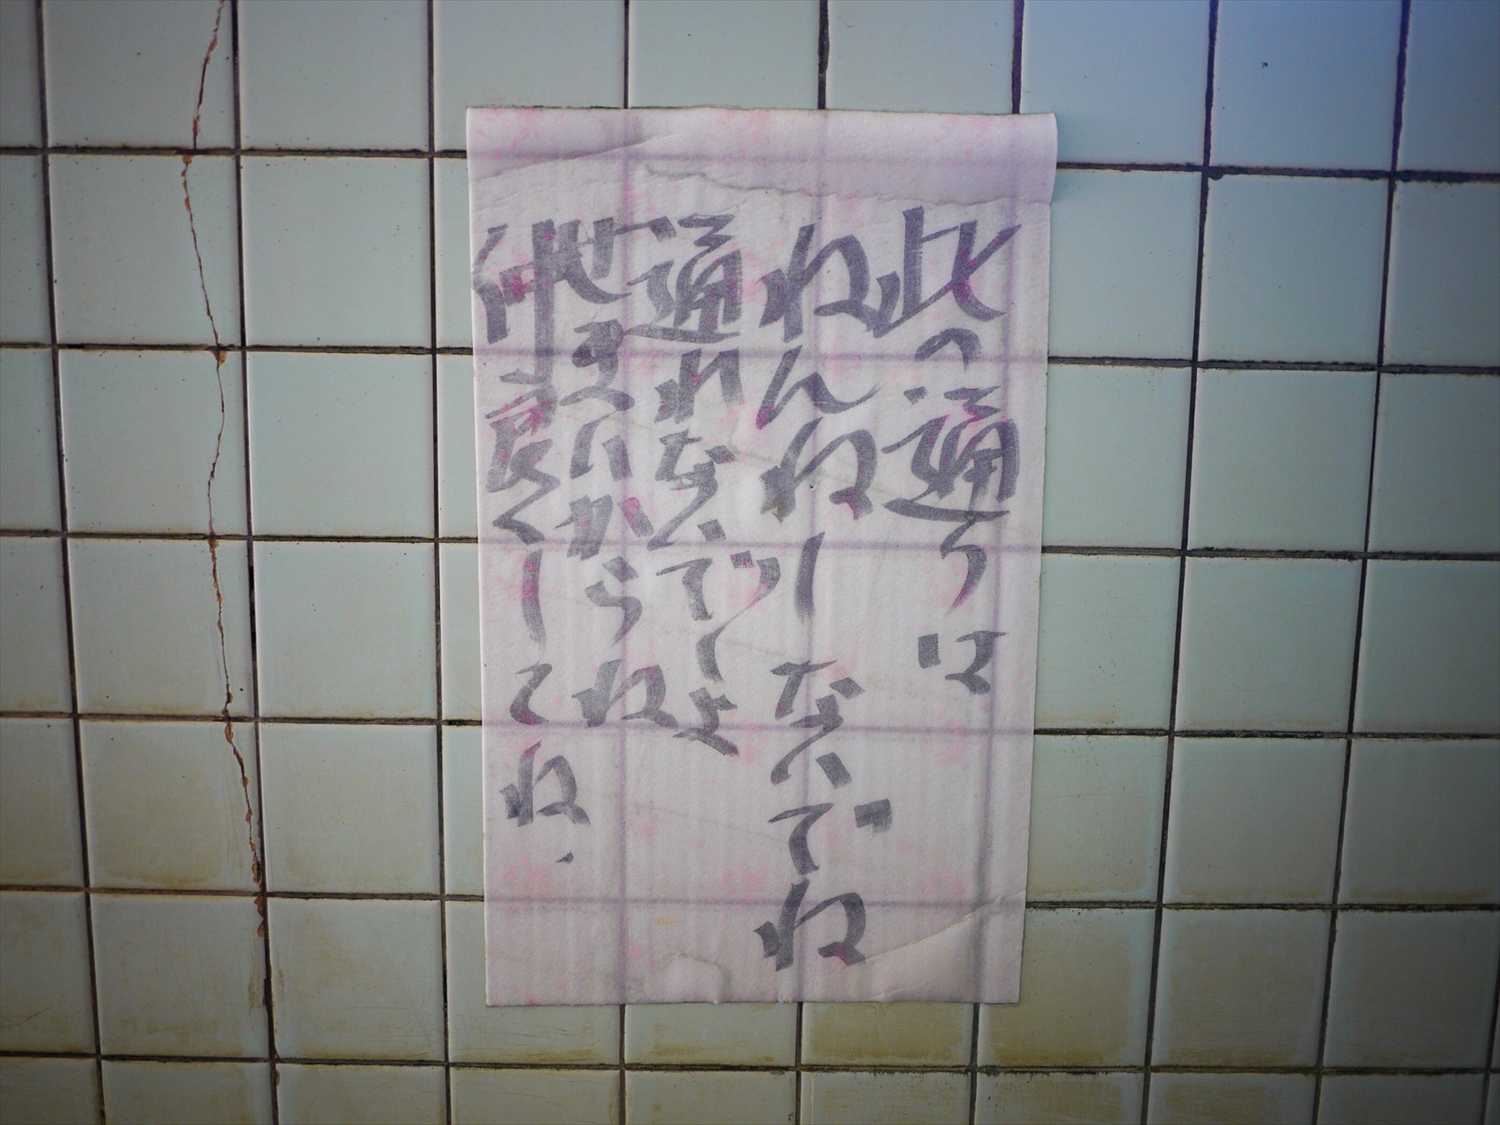 此の通りは
ねんねし ないでね
通れないでしょ
世まいからね
仲良くしてね、